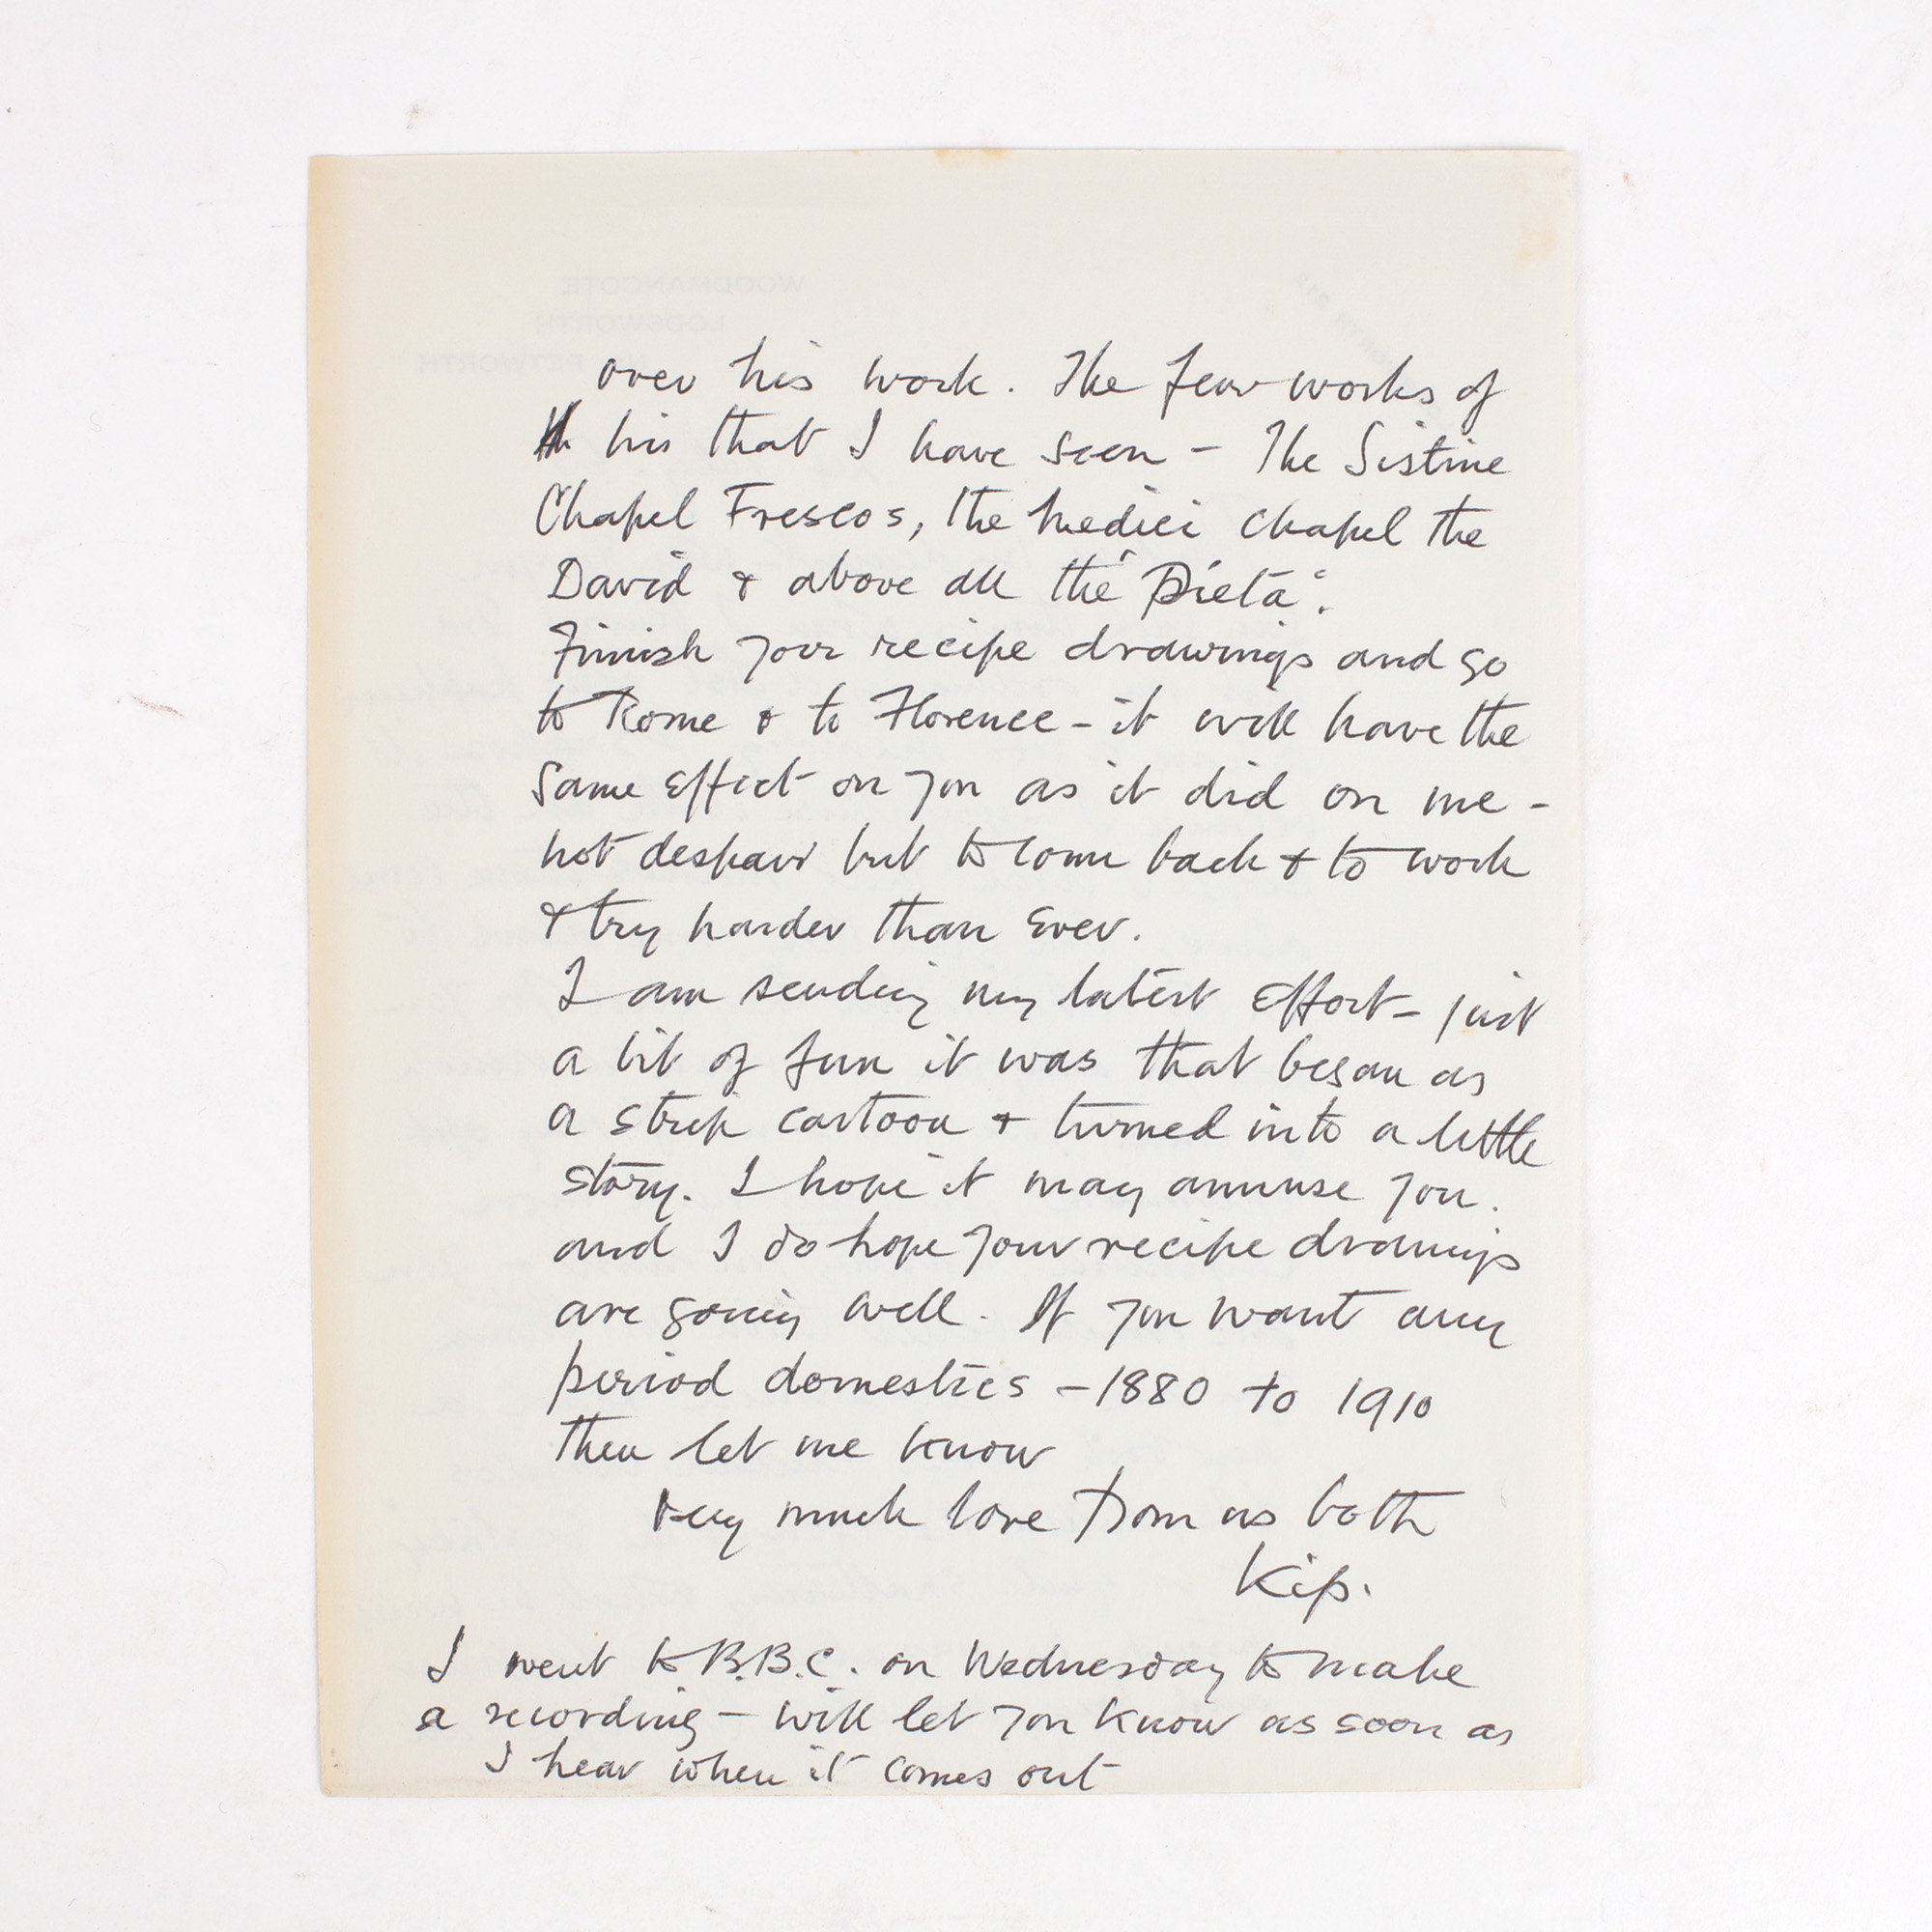 WOODMANCOTE
LODSWORTH
NR PETWORTH
over his work. The few works of
his that I have seen – The Sistine
Chapel Frescos, the Medici Chapel the
David & above all the "Pieta".
Finish your recipe drawings and go
to Rome & to Florence – it will have the
same effect on you as it did on me –
not despair but to come back & to work
& try harder than ever.
I am sending my latest effort – just
a bit of fun it was that began as
a strip cartoon & turned into a little
story. I hope it may amuse you.
and I do hope your recipe drawings
are going well. If you want any
period domestics – 1880 to 1910
then let me know
Very much love from us both
Kip.
I went to B.B.C. on Wednesday to make
a recording – will let you know as soon as
I hear when it comes out